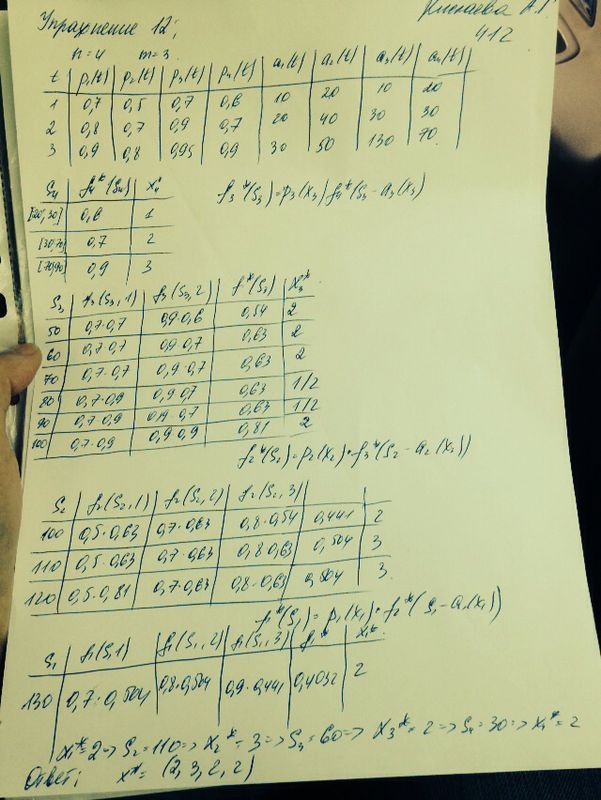 Упражнение 12;
412
n=4 m=3
t | p₁(t) | p₂(t) | p₃(t) | p₄(t) | a₁(t) | a₂(t) | a₃(t) | a₄(t)
1 | 0,7 | 0,5 | 0,7 | 0,6 | 10 | 20 | 10 | 20
2 | 0,8 | 0,7 | 0,9 | 0,7 | 20 | 40 | 30 | 30
3 | 0,9 | 0,8 | 0,95 | 0,9 | 30 | 50 | 130 | 70
S₄ | f₄*(S₄) | x₄*
[20,30] | 0,6 | 1
[30,70] | 0,7 | 2
[70,90] | 0,9 | 3
f₃*(S₃)=p₃(x₃) f₄*(S₃-a₃(x₃)
S₃ | f₃(S₃,1) | f₃(S₃,2) | f*(S₃) | x₃*
50 | 0,7·0,7 | 0,9·0,6 | 0,54 | 2
60 | 0,7·0,7 | 0,9·0,7 | 0,63 | 2
70 | 0,7·0,7 | 0,9·0,7 | 0,63 | 2
80 | 0,7·0,9 | 0,9·0,7 | 0,63 | 1/2
90 | 0,7·0,9 | 0,9·0,7 | 0,63 | 1/2
100 | 0,7·0,9 | 0,9·0,9 | 0,81 | 2
f₂*(S₂)=p₂(x₂)·f₃*(S₂-a₂(x₂))
S₂ | f₂(S₂,1) | f₂(S₂,2) | f₂(S₂,3)
100 | 0,5·0,63 | 0,7·0,63 | 0,8·0,54 | 0,441 | 2
110 | 0,5·0,63 | 0,7·0,63 | 0,8·0,63 | 0,504 | 3
120 | 0,5·0,81 | 0,7·0,63 | 0,8·0,63 | 0,504 | 3
f₁*(S₁)=p₁(x₁)·f₂*(S₁-a₁(x₁))
S₁ | f₁(S₁,1) | f₁(S₁,2) | f₁(S₁,3) | f₁* | x₁*
130 | 0,7·0,504 | 0,8·0,504 | 0,9·0,441 | 0,4032 | 2
x₁*=2=>S₂=110=>x₂*=3=>S₃=60=>x₃*=2=>S₄=30=>x₄*=2
Ответ; x*=(2,3,2,2)